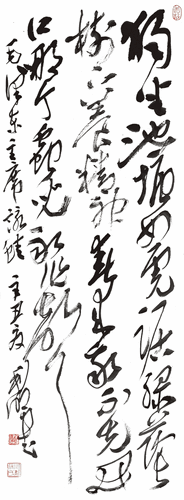 独坐池塘如虎踞绿荫
树下养精神春来我不先开
口那个虫儿敢作声
毛泽东主席咏蛙 辛丑夏